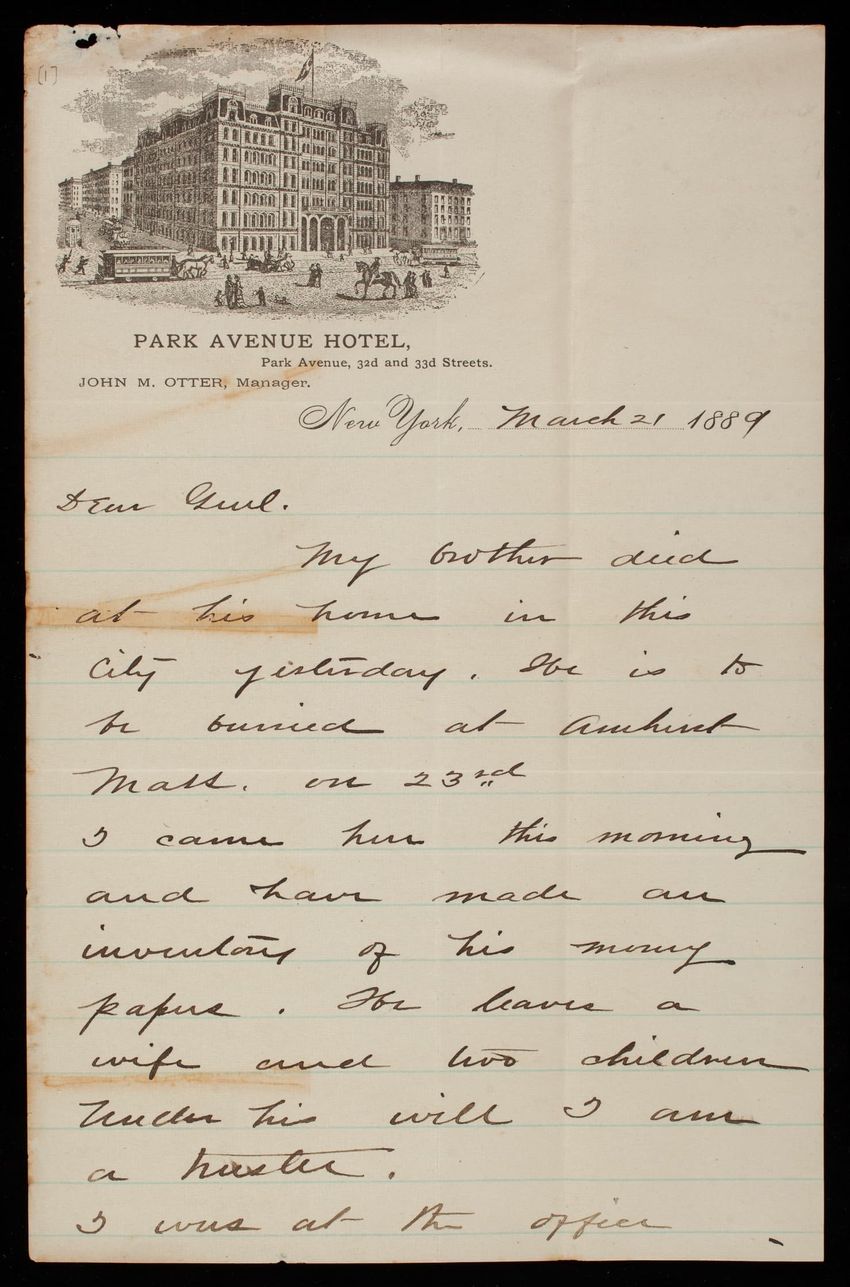 [1]
PARK AVENUE HOTEL,
Park Avenue, 32d and 33d Streets.
JOHN M. OTTER, Manager.
New York, March 21 1889
Dear Genl.
My brother died
at his home in this
City yesterday. He is to
be buried at Amherst
Mass. on 23rd
I came here this morning
and have made an
inventory of his money
papers. He leaves a
wife and two children
Under his will I am
a trustee.
I was at the office